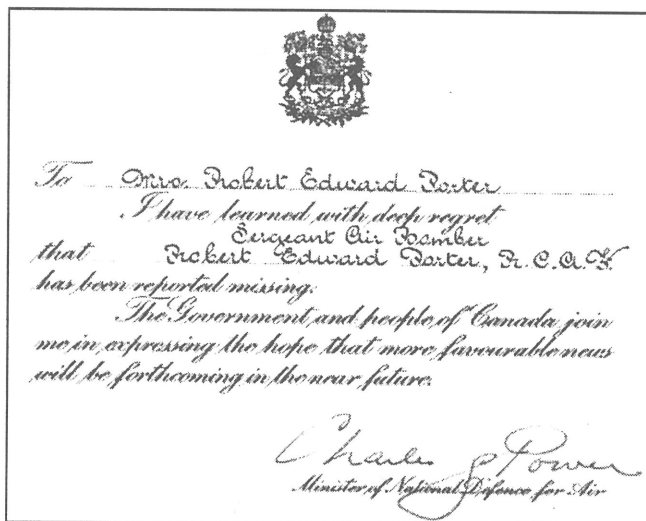 To Mrs. Robert Edward Porter
I have learned with deep regret
Sergeant Air Bomber
that Robert Edward Porter, R.C.A.F.
has been reported missing.
The Government and people of Canada join
me in expressing the hope that more favourable news
will be forthcoming in the near future.
Charles G Power
Minister of National Defence for Air